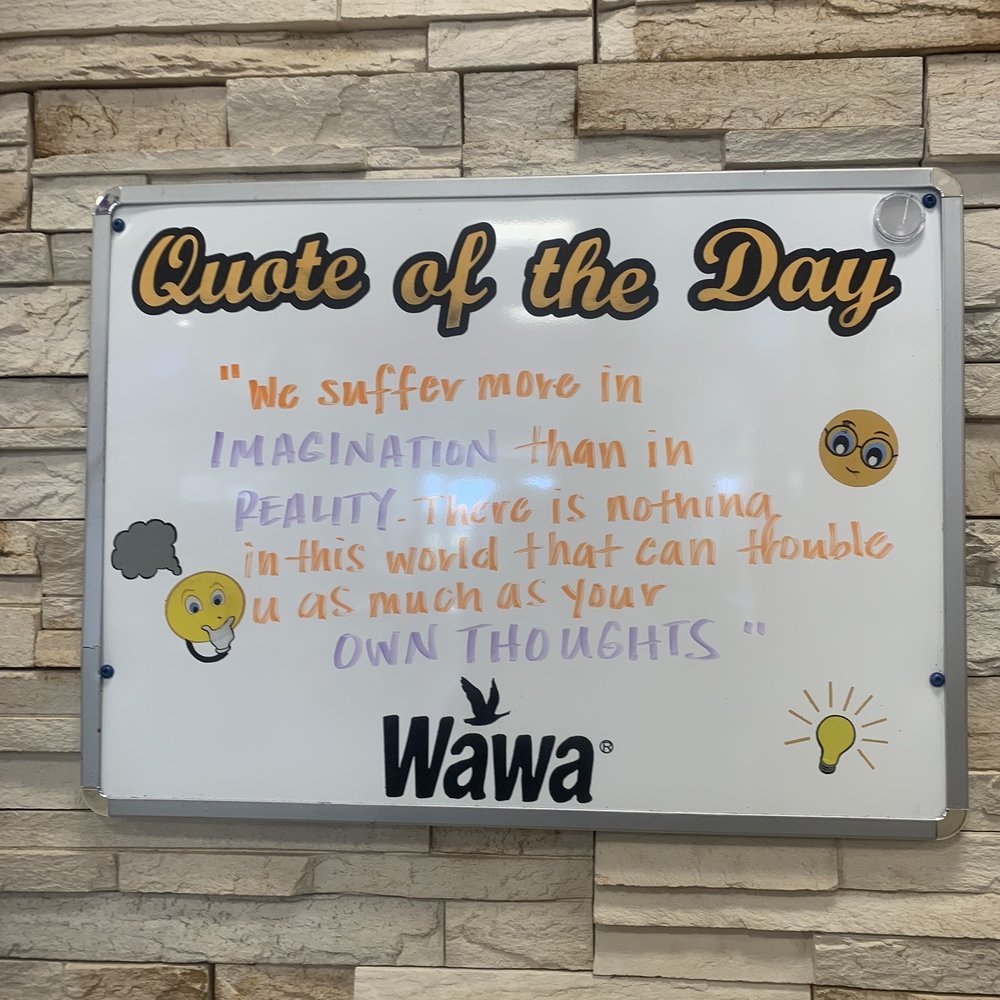 Quote of the Day
"We suffer more in
IMAGINATION than in
REALITY. There is nothing
in this world that can trouble
u as much as your
OWN THOUGHTS"
Wawa®